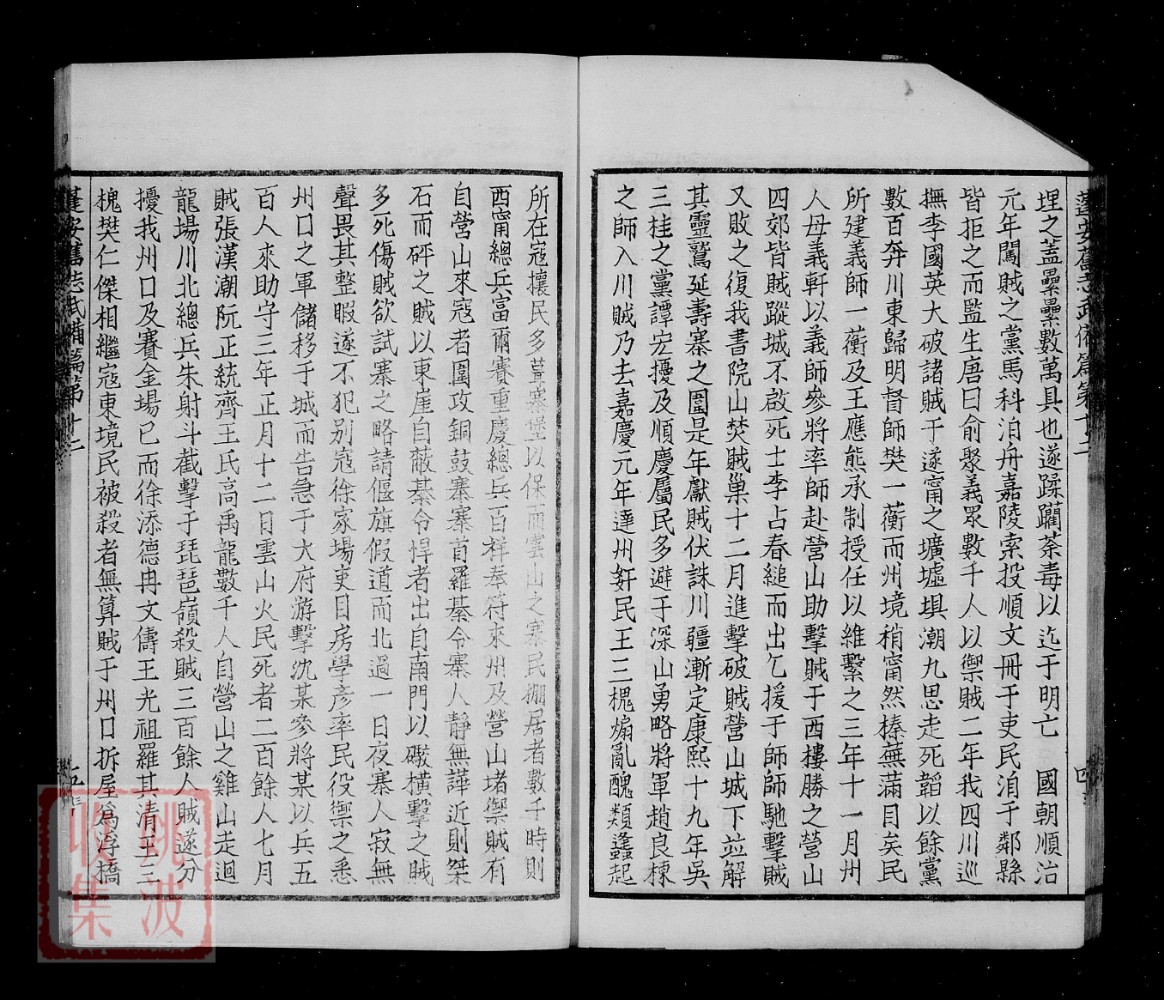 埋之蓋纍纍數萬具也遂蹂躪荼毒以迄于明亡　國朝順治
元年闖賊之黨馬科泊舟嘉陵索投順文冊于吏民洎于鄰縣
皆拒之而監生唐曰俞聚義眾數千人以禦賊二年我四川巡
撫李國英大破諸賊于遂甯之壙墟埧潮九思走死韜以餘黨
數百奔川東歸明督師樊一蘅而州境稍甯然榛蕪滿目矣民
所建義師一蘅及王應熊承制授任以維繫之三年十一月州
人母義軒以義師參將率師赴營山助擊賊于西樓勝之營山
四郊皆賊蹤城不啟死士李占春縋而出乞援于師師馳擊賊
又敗之復我書院山焚賊巢十二月進擊破賊營山城下竝解
其靈鷲延壽寨之圍是年獻賊伏誅川疆漸定康熙十九年吳
三桂之黨譚宏擾及順慶屬民多避于深山勇略將軍趙良棟
之師入川賊乃去嘉慶元年達州奸民王三槐煽亂醜類蠭起
所在寇攘民多葺寨堡以保而雲山之寨民棚居者數千時則
西甯總兵富爾賽重慶總兵百祥奉符來州及營山堵禦賊有
自營山來寇者圍攻銅鼓寨寨首羅綦令寨人靜無譁近則桀
石而砰之賊以東崖自蔽綦令悍者出自南門以礮橫擊之賊
多死傷賊欲試寨之略請偃旗假道而北過一日夜寨人寂無
聲畏其整暇遂不犯别寇徐家場吏目房學彥率民役禦之悉
州口之軍儲移于城而告急于大府游擊沈某參將某以兵五
百人來助守三年正月十二日雲山火民死者二百餘人七月
賊張漢潮阮正統齊王氏高禹龍數千人自營山之雞山走迴
龍場川北總兵朱射斗截擊于琵琶領殺賊三百餘人賊遂分
擾我州口及賽金場已而徐添德冉文儔王光祖羅其清王三
槐樊仁傑相繼寇東境民被殺者無算賊于州口拆屋爲浮橋
蓬安舊志武備篇第十二
姚波
收集